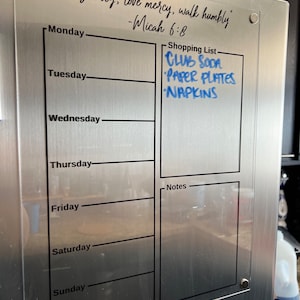 love mercy, walk humbly"
-Micah 6:8
Monday
Shopping List
CLUB SODA
·PAPER PLATES
·NAPKINS
Tuesday
Wednesday
Thursday
Friday
Notes
Saturday
Sunday